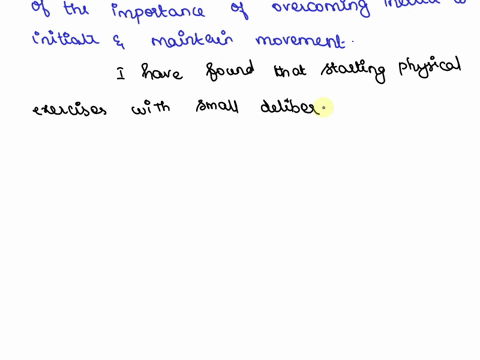 of the importance of overcoming inertia to
initiate & maintain movement.
I have found that starting physical
exercises with small deliber